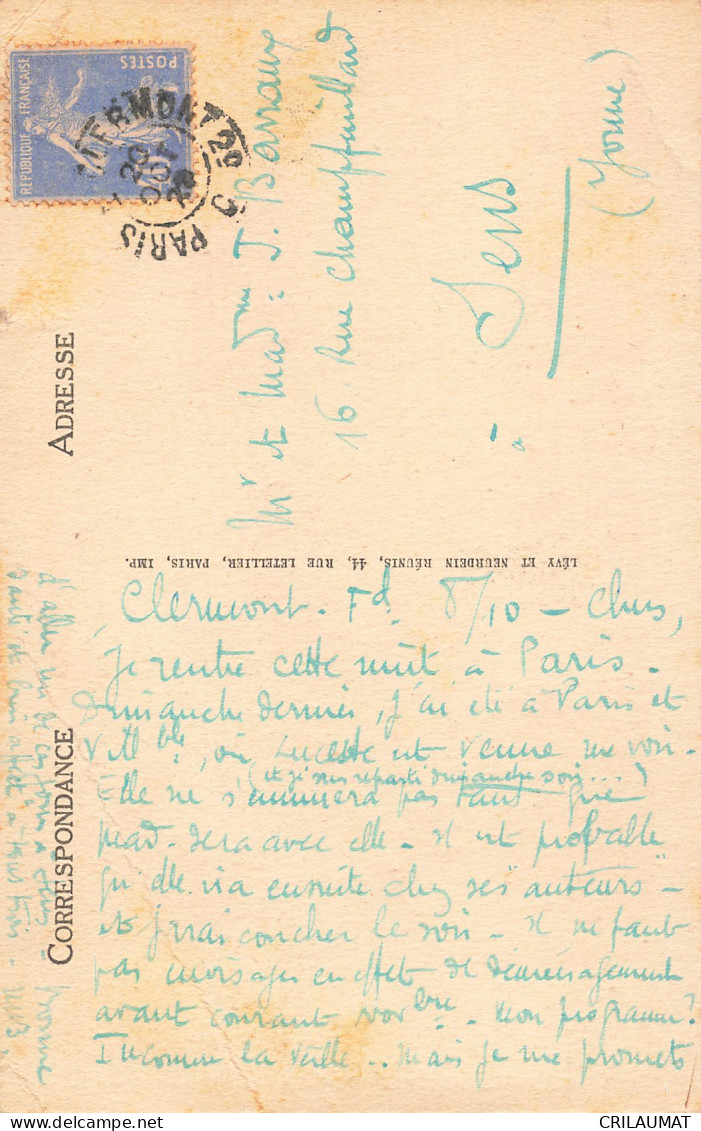 POSTES
REPUBLIQUE FRANÇAISE
CLERMONT
PARIS
20
29
ADRESSE
CORRESPONDANCE
LÉVY ET NEURDEIN RÉUNIS, 44, RUE LETELLIER, PARIS, IMP.
Mr et Madme J. Barraux
16 Rue Champfeuillard
à Sens
(Yonne)
Clermont-Fd. 8/10 - Chers,
Je rentre cette nuit à Paris -
Dimanche dernier, j'ai été à Paris et
où Lucette est venue me voir -
(et je suis reparti dimanche soir...)
Elle ne s'ennuiera pas tant que
Mad. sera avec elle - Il est probable
qu'elle ira ensuite chez ses auteurs -
et j'irai coucher le soir - Il ne faut
pas envisager en effet de déménagement
avant courant novbre - Mon programme ?
Inconnu la veille .. Mais je me promets
d'aller un de ces
CRILAUMAT